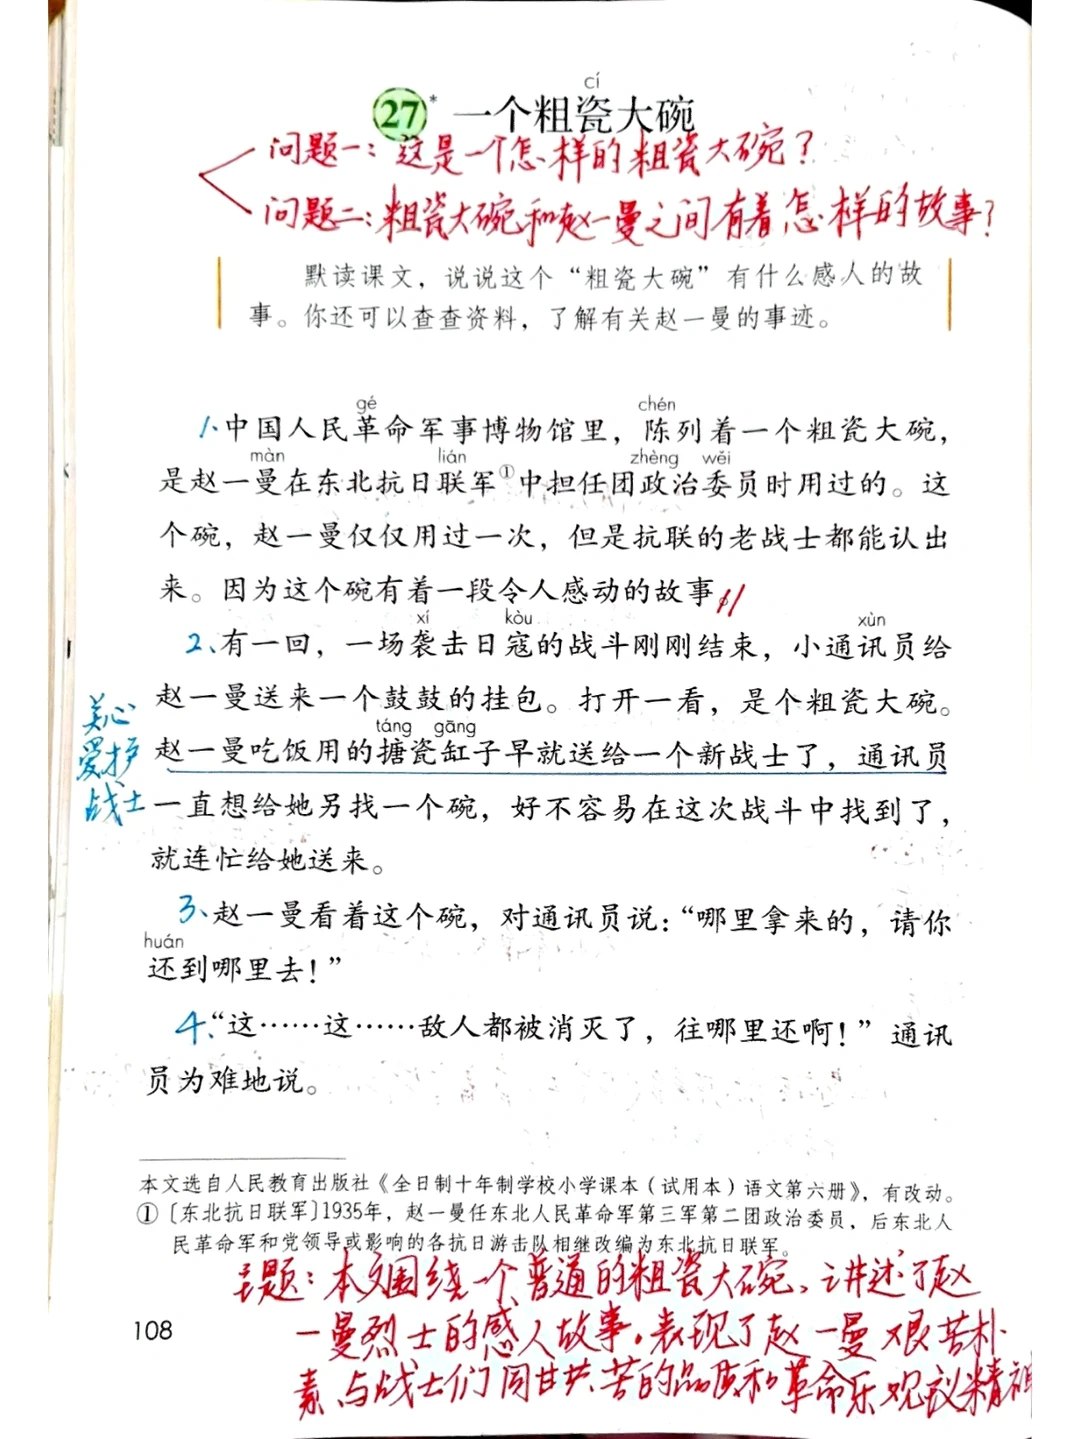 cí
27* 一个粗瓷大碗
问题一：这是一个怎样的粗瓷大碗？
问题二：粗瓷大碗和赵一曼之间有着怎样的故事？
默读课文，说说这个“粗瓷大碗”有什么感人的故
事。你还可以查查资料，了解有关赵一曼的事迹。
gé chén
1、中国人民革命军事博物馆里，陈列着一个粗瓷大碗，
màn lián zhèng wěi
是赵一曼在东北抗日联军①中担任团政治委员时用过的。这
个碗，赵一曼仅仅用过一次，但是抗联的老战士都能认出
来。因为这个碗有着一段令人感动的故事。//
xí kòu xùn
2、有一回，一场袭击日寇的战斗刚刚结束，小通讯员给
赵一曼送来一个鼓鼓的挂包。打开一看，是个粗瓷大碗。
táng gāng
赵一曼吃饭用的搪瓷缸子早就送给一个新战士了，通讯员
一直想给她另找一个碗，好不容易在这次战斗中找到了，
就连忙给她送来。
关心
爱护
战士
3、赵一曼看着这个碗，对通讯员说：“哪里拿来的，请你
huán
还到哪里去！”
4、“这……这……敌人都被消灭了，往哪里还啊！”通讯
员为难地说。
本文选自人民教育出版社《全日制十年制学校小学课本（试用本）语文第六册》，有改动。
①〔东北抗日联军〕1935年，赵一曼任东北人民革命军第三军第二团政治委员，后东北人
民革命军和党领导或影响的各抗日游击队相继改编为东北抗日联军。
主题：本文围绕一个普通的粗瓷大碗，讲述了赵
一曼烈士的感人故事。表现了赵一曼艰苦朴
素、与战士们同甘共苦的品质和革命乐观议精神
108